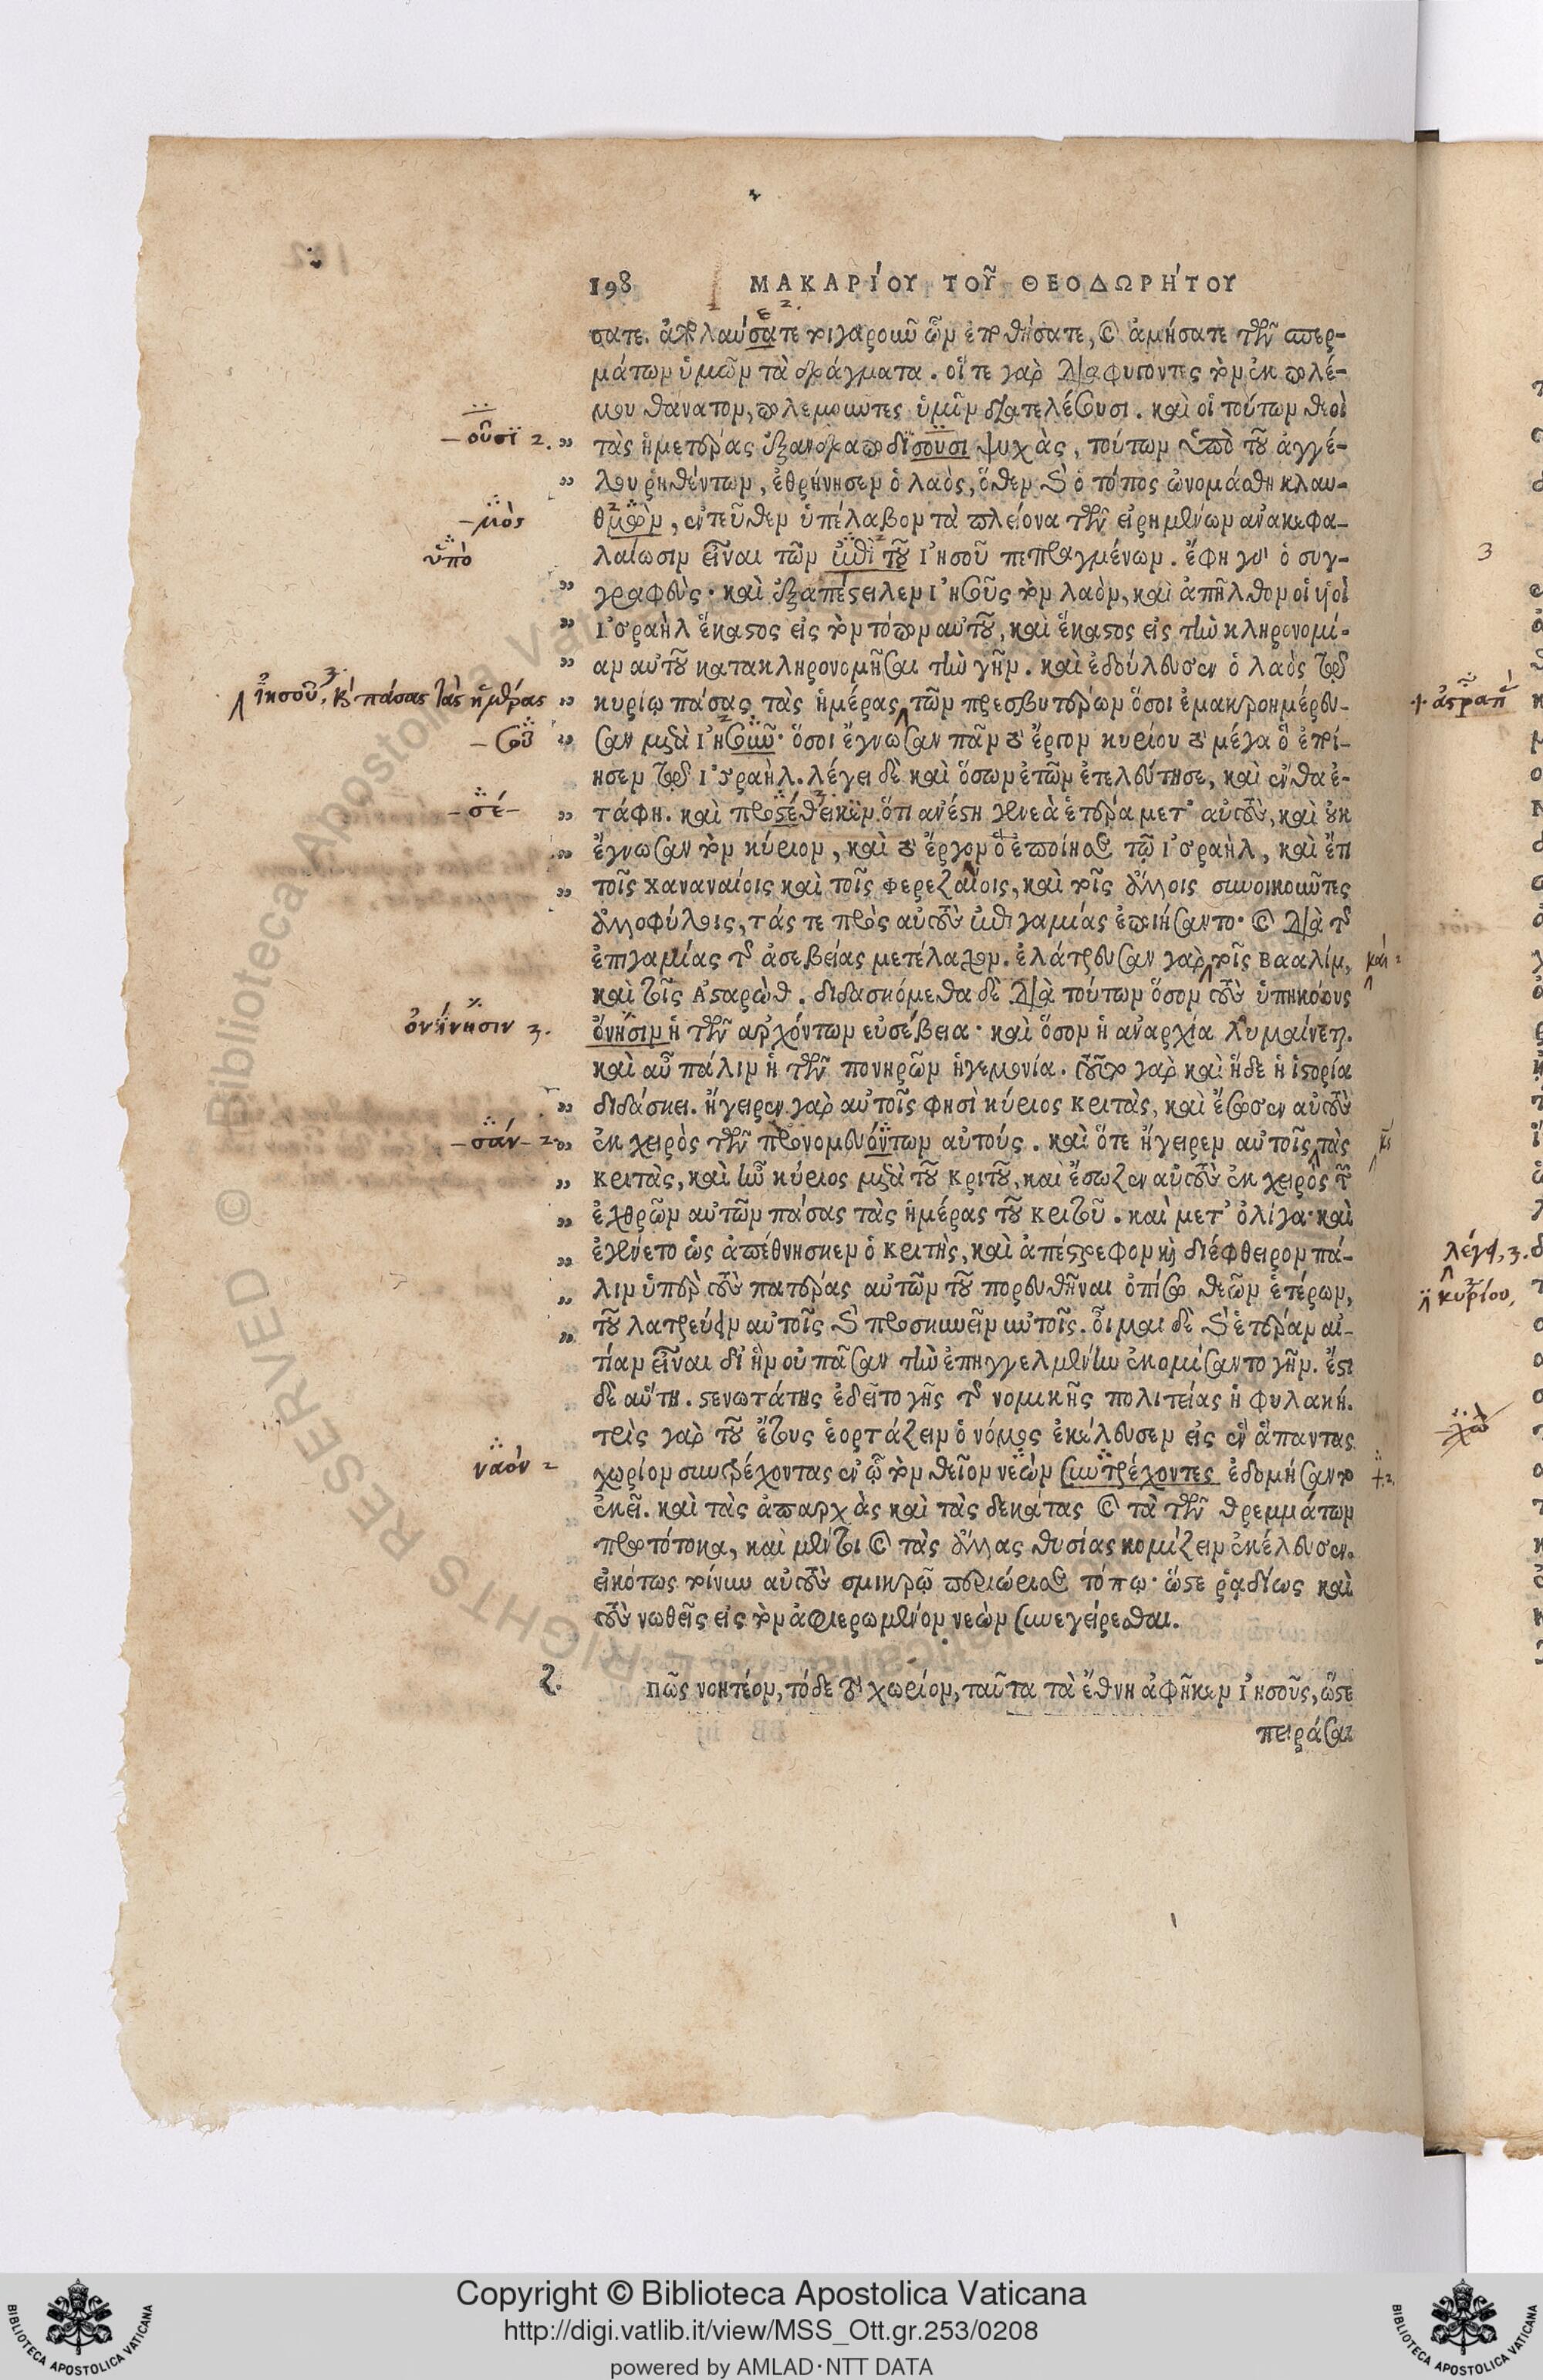 198 ΜΑΚΑΡΊΟΥ ΤΟΥ͂ ΘΕΟΔΩΡΉΤΟΥ
σατε. ἀπολαύσατε τοιγαροῦν ὧν ἐποθήσατε, καὶ ἀμήσατε τῶν σπερ-
μάτων ὑμῶν τὰ δράγματα. οἵ τε γὰρ διαφυγόντες τὸν ἐκ πολέ-
μου θάνατον, πολεμοῦντες ὑμῖν διατελέσουσι. καὶ οἱ τούτων θεοὶ
–οῦσϊ 2. τὰς ἡμετέρας ἐξανδραποδίσουσι ψυχὰς, τούτων ὑπὸ τοῦ ἀγγέ-
λου ῥηθέντων, ἐθρήνησεν ὁ λαὸς, ὅθεν καὶ ὁ τόπος ὠνομάσθη κλαυ-
–μὸς θμὸν, ἐντεῦθεν ὑπέλαβον τὰ πλείονα τῶν εἰρημένων ἀνακεφα-
ὑπὸ λαίωσιν εἶναι τῶν ἐπὶ τοῦ Ἰησοῦ πεπραγμένων. ἔφη γὰρ ὁ συγ-
γραφεύς· καὶ ἐξαπέστειλεν Ἰησοῦς τὸν λαὸν, καὶ ἀπῆλθον οἱ υἱοὶ
Ἰσραὴλ ἕκαστος εἰς τὸν τόπον αὐτοῦ, καὶ ἕκαστος εἰς τὴν κληρονομί-
αν αὐτοῦ κατακληρονομῆσαι τὴν γῆν. καὶ ἐδούλευσεν ὁ λαὸς τῷ
Ἰησοῦ, κ πάσας τὰς ἡμέρας κυρίῳ πάσας τὰς ἡμέρας τῶν πρεσβυτέρων ὅσοι ἐμακροημέρευ-
–σοῦ σαν μετὰ Ἰησοῦν· ὅσοι ἔγνωσαν πᾶν τὸ ἔργον κυρίου τὸ μέγα ὃ ἐποί-
ησεν τῷ Ἰσραὴλ. λέγει δὲ καὶ ὅσων ἐτῶν ἐτελεύτησε, καὶ ἔνθα ἐ-
–σέ– τάφη. καὶ προστέθεικεν ὅτι ἀνέστη γενεὰ ἑτέρα μετ' αὐτοὺς, καὶ οὐκ
ἔγνωσαν τὸν κύριον, καὶ τὸ ἔργον ὃ ἐποίησε τῷ Ἰσραὴλ, καὶ ἔτι
τοῖς χαναναίοις καὶ τοῖς φερεζαίοις, καὶ τοῖς ἄλλοις συνοικοῦντες
ἀλλοφύλοις, τάς τε πρὸς αὐτοὺς ἐπιγαμίας ἐποιήσαντο· καὶ διὰ τῆς
ἐπιγαμίας τῆς ἀσεβείας μετέλαχον. ἐλάτρευσαν γὰρ τοῖς Βααλίμ, καὶ
καὶ τοῖς Ἀσταρώθ. διδασκόμεθα δὲ διὰ τούτων ὅσον τοὺς ὑπηκόους
ὀνίνησιν 3. ὀνήσιν ἡ τῶν ἀρχόντων εὐσέβεια· καὶ ὅσον ἡ ἀναρχία λυμαίνεται.
καὶ αὖ πάλιν ἡ τῶν πονηρῶν ἡγεμονία. τοῦτο γὰρ καὶ ἥδε ἡ ἱστορία
διδάσκει. ἤγειρεν γὰρ αὐτοῖς φησὶ κύριος κριτὰς, καὶ ἔσωσεν αὐτοὺς
–σάν– 2 ἐκ χειρὸς τῶν προνομευόντων αὐτούς. καὶ ὅτε ἤγειρεν αὐτοῖς τὰς
κριτὰς, καὶ ἦν κύριος μετὰ τοῦ κριτοῦ, καὶ ἔσωζεν αὐτοὺς ἐκ χειρὸς τῶν
ἐχθρῶν αὐτῶν πάσας τὰς ἡμέρας τοῦ κριτοῦ. καὶ μετ' ὀλίγα· καὶ
ἐγένετο ὡς ἀπέθνησκεν ὁ κριτὴς, καὶ ἀπέστρεφον καὶ διέφθειρον πά-
λιν ὑπὲρ τοὺς πατέρας αὐτῶν τοῦ πορευθῆναι ὀπίσω θεῶν ἑτέρων,
τοῦ λατρεύειν αὐτοῖς καὶ προσκυνεῖν αὐτοῖς. οἶμαι δὲ καὶ ἑτέραν αἰ-
τίαν εἶναι δι' ἣν οὐ πᾶσαν τὴν ἐπηγγελμένην ἐκομίσαντο γῆν. ἔστι
δὲ αὕτη. στενωτάτης ἐδεῖτο γῆς τῆς νομικῆς πολιτείας ἡ φυλακή.
τρὶς γὰρ τοῦ ἔτους ἑορτάζειν ὁ νόμος ἐκέλευσεν εἰς ἓν ἅπαντας
ναὸν 2 χωρίον συντρέχοντας ἐν ᾧ τὸν θεῖον νεὼν συντρέχοντες ἐδομήσαντο
ἐκεῖ. καὶ τὰς ἀπαρχὰς καὶ τὰς δεκάτας καὶ τὰ τῶν θρεμμάτων
πρωτότοκα, καὶ μέντοι καὶ τὰς ἄλλας θυσίας κομίζειν ἐκέλευσεν.
εἰκότως τοίνυν αὐτοὺς σμικρῷ περιώρισε τόπῳ· ὥστε ῥᾳδίως καὶ
τοὺς νωθεῖς εἰς τὸν ἀφιερωμένον νεὼν συνεγείρεσθαι.
ζ. Πῶς νοητέον, τόδε τὸ χωρίον, ταῦτα τὰ ἔθνη ἀφῆκεν Ἰησοῦς, ὥστε
πειράσαι
Copyright © Biblioteca Apostolica Vaticana
http://digi.vatlib.it/view/MSS_Ott.gr.253/0208
powered by AMLAD·NTT DATA